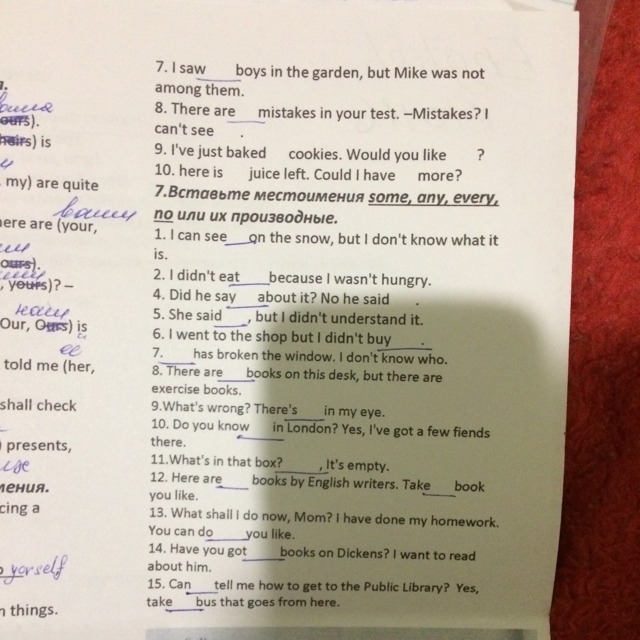 7. I saw____ boys in the garden, but Mike was not
among them.
8. There are ____ mistakes in your test. –Mistakes? I
can't see ____.
9. I've just baked ____ cookies. Would you like ____?
10. here is ____ juice left. Could I have ____ more?
7.Вставьте местоимения some, any, every,
no или их производные.
1. I can see____on the snow, but I don't know what it
is.
2. I didn't eat____because I wasn't hungry.
4. Did he say ____ about it? No he said ____.
5. She said ____, but I didn't understand it.
6. I went to the shop but I didn't buy ____.
7. ____ has broken the window. I don't know who.
8. There are ____ books on this desk, but there are
exercise books.
9.What's wrong? There's ____ in my eye.
10. Do you know ____ in London? Yes, I've got a few fiends
there.
11.What's in that box? ____, It's empty.
12. Here are____ books by English writers. Take____ book
you like.
13. What shall I do now, Mom? I have done my homework.
You can do____you like.
14. Have you got ____books on Dickens? I want to read
about him.
15. Can____ tell me how to get to the Public Library? Yes,
take____ bus that goes from here.
ours).
) is
, my) are quite
вашу
here are (your,
ours).
, yours)? –
наш
Our, Ours) is
ее
told me (her,
shall check
) presents,
cing a
yorself
things.